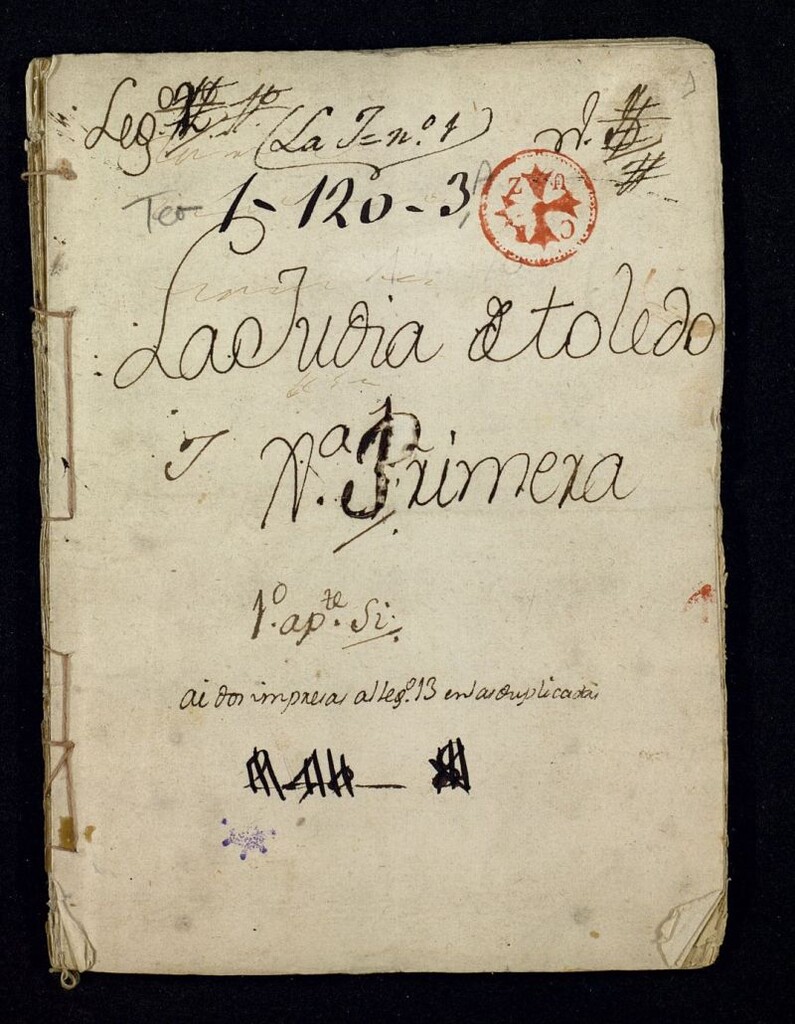 Leg.º (La J = n.º 1) n.
Teo 1-120-3, A
La Judia de toledo
J N.ª Primera
1.º ap.te Si.
ai dos impresas al leg.º 13 en las duplicadas